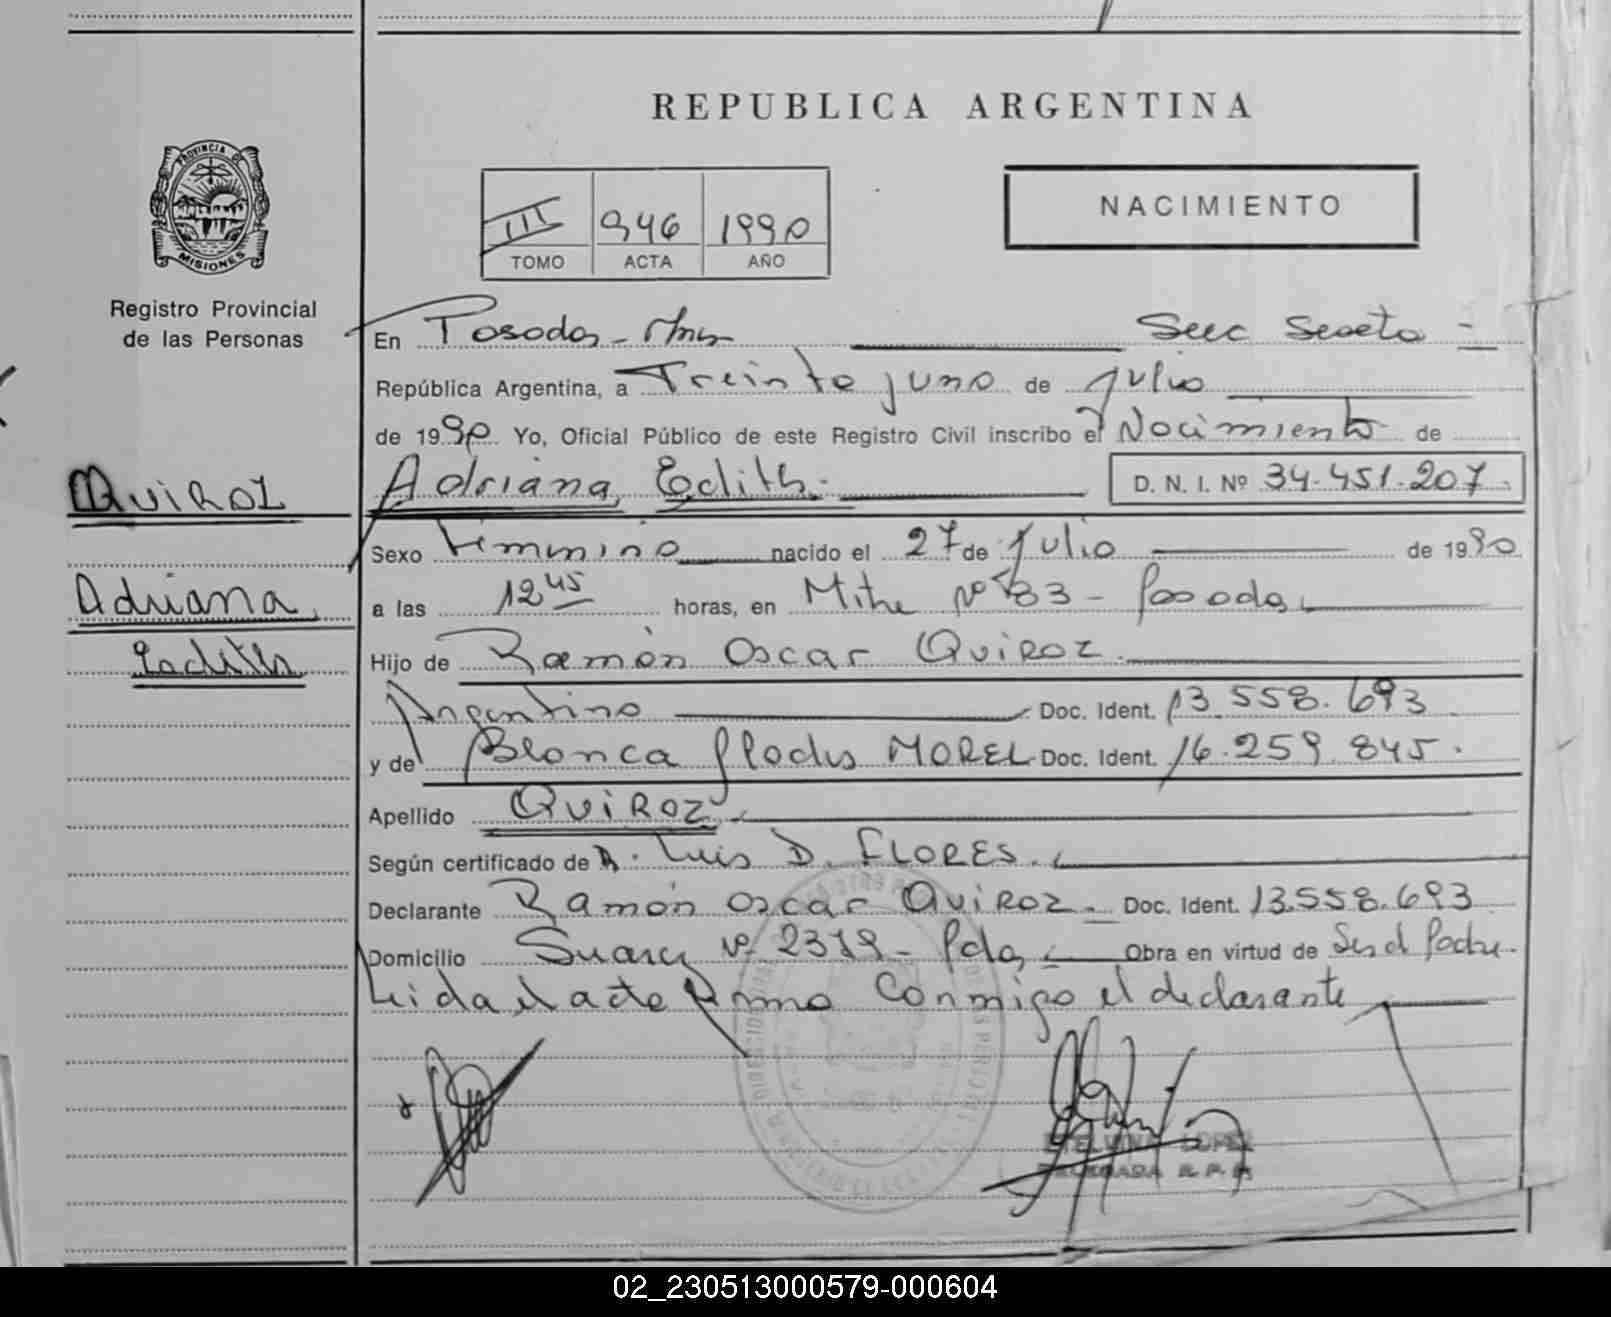 REPUBLICA ARGENTINA
PROVINCIA DE
MISIONES
Registro Provincial
de las Personas
III 946 1990
TOMO ACTA AÑO
NACIMIENTO
En Posadas - Mnes Secc Sexta -
República Argentina, a Treinta y uno de julio
de 1990 Yo, Oficial Público de este Registro Civil inscribo el Nacimiento de
QUIROZ
Adriana, Edith. D. N. I. Nº 34.451.207
Sexo Femenino nacido el 27 de Julio de 1990
Adriana,
Edith
a las 12 45 horas, en Mitre Nº 83 - Posadas
Hijo de Ramón Oscar QUIROZ.
Argentino Doc. Ident. 13.558.693
y de Blanca Gladis MOREL Doc. Ident. 16.259.845.
Apellido QUIROZ
Según certificado de Dr. Luis D. FLORES.
Declarante Ramón Oscar QUIROZ. Doc. Ident. 13.558.693
Domicilio Nº 2319 - Pdas Obra en virtud de Ser el Padre.
Leida el acta firma conmigo el declarante
ETELVINA LOPEZ
DELEGADA R. P. P.
02_230513000579-000604